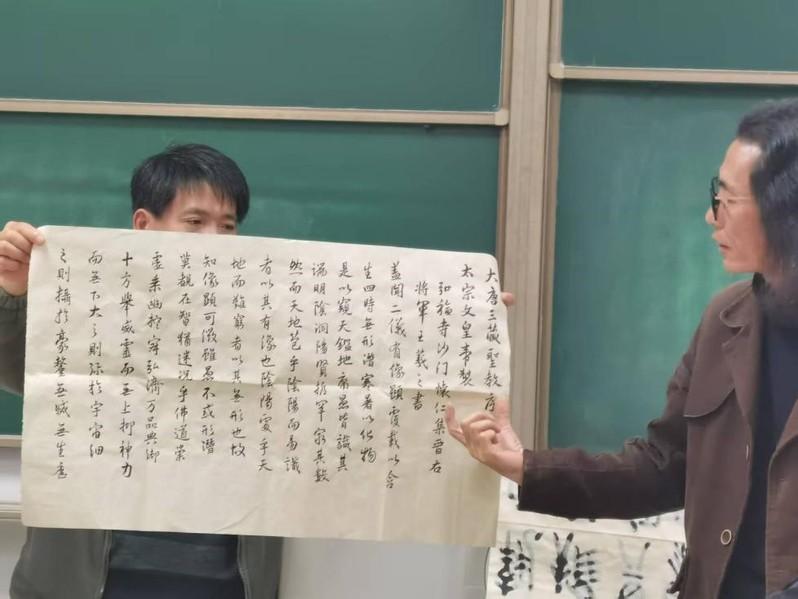 大唐三藏聖教序
太宗文皇帝製
弘福寺沙门懷仁集晋右
將軍王羲之書
蓋聞二儀有像顯覆載以含
生四時無形潜寒暑以化物
是以窺天鑑地庸愚皆識其
端明陰洞陽賢哲罕窮其數
然而天地苞乎陰陽而易識
者以其有像也陰陽處乎天
地而難窮者以其無形也故
知像顯可徵雖愚不惑形潜
莫覩在智猶迷况乎佛道崇
虚乘幽控寂弘濟万品典御
十方舉威靈而无上抑神力
而無下大之則弥於宇宙細
之則攝於豪釐無滅無生歷